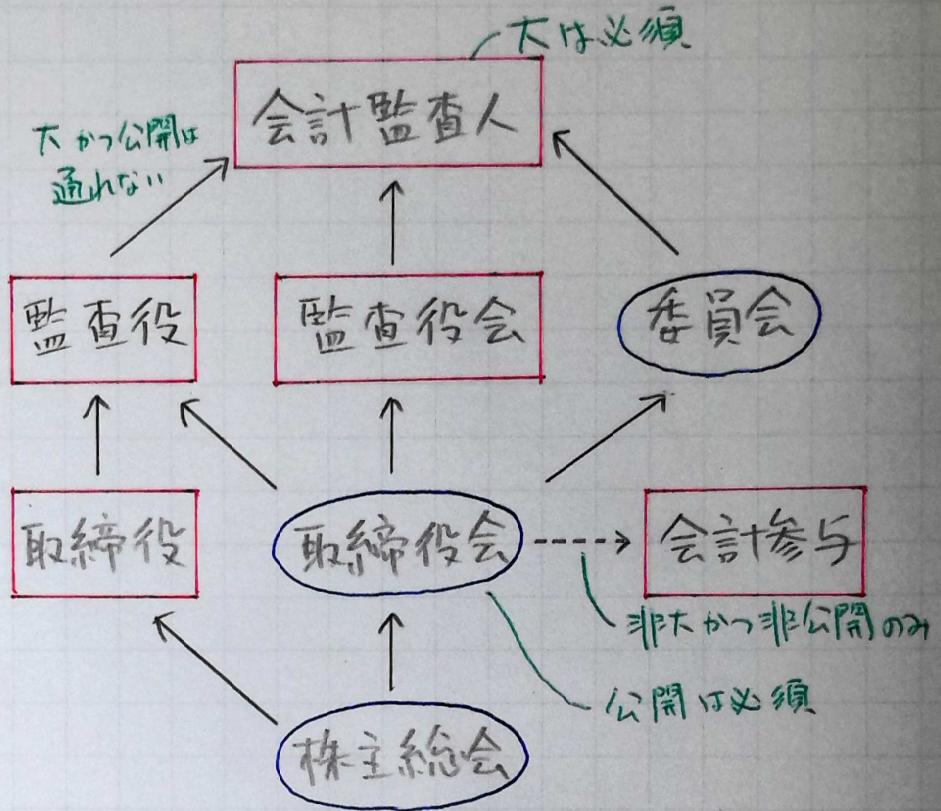 大は必須
会計監査人
大かつ公開は
通れない
監査役
監査役会
委員会
取締役
取締役会
会計参与
非大かつ非公開のみ
公開は必須
株主総会